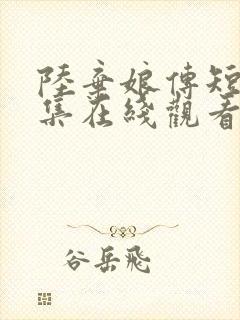 陸棄娘傳短
集在綫觀看
谷岳飛